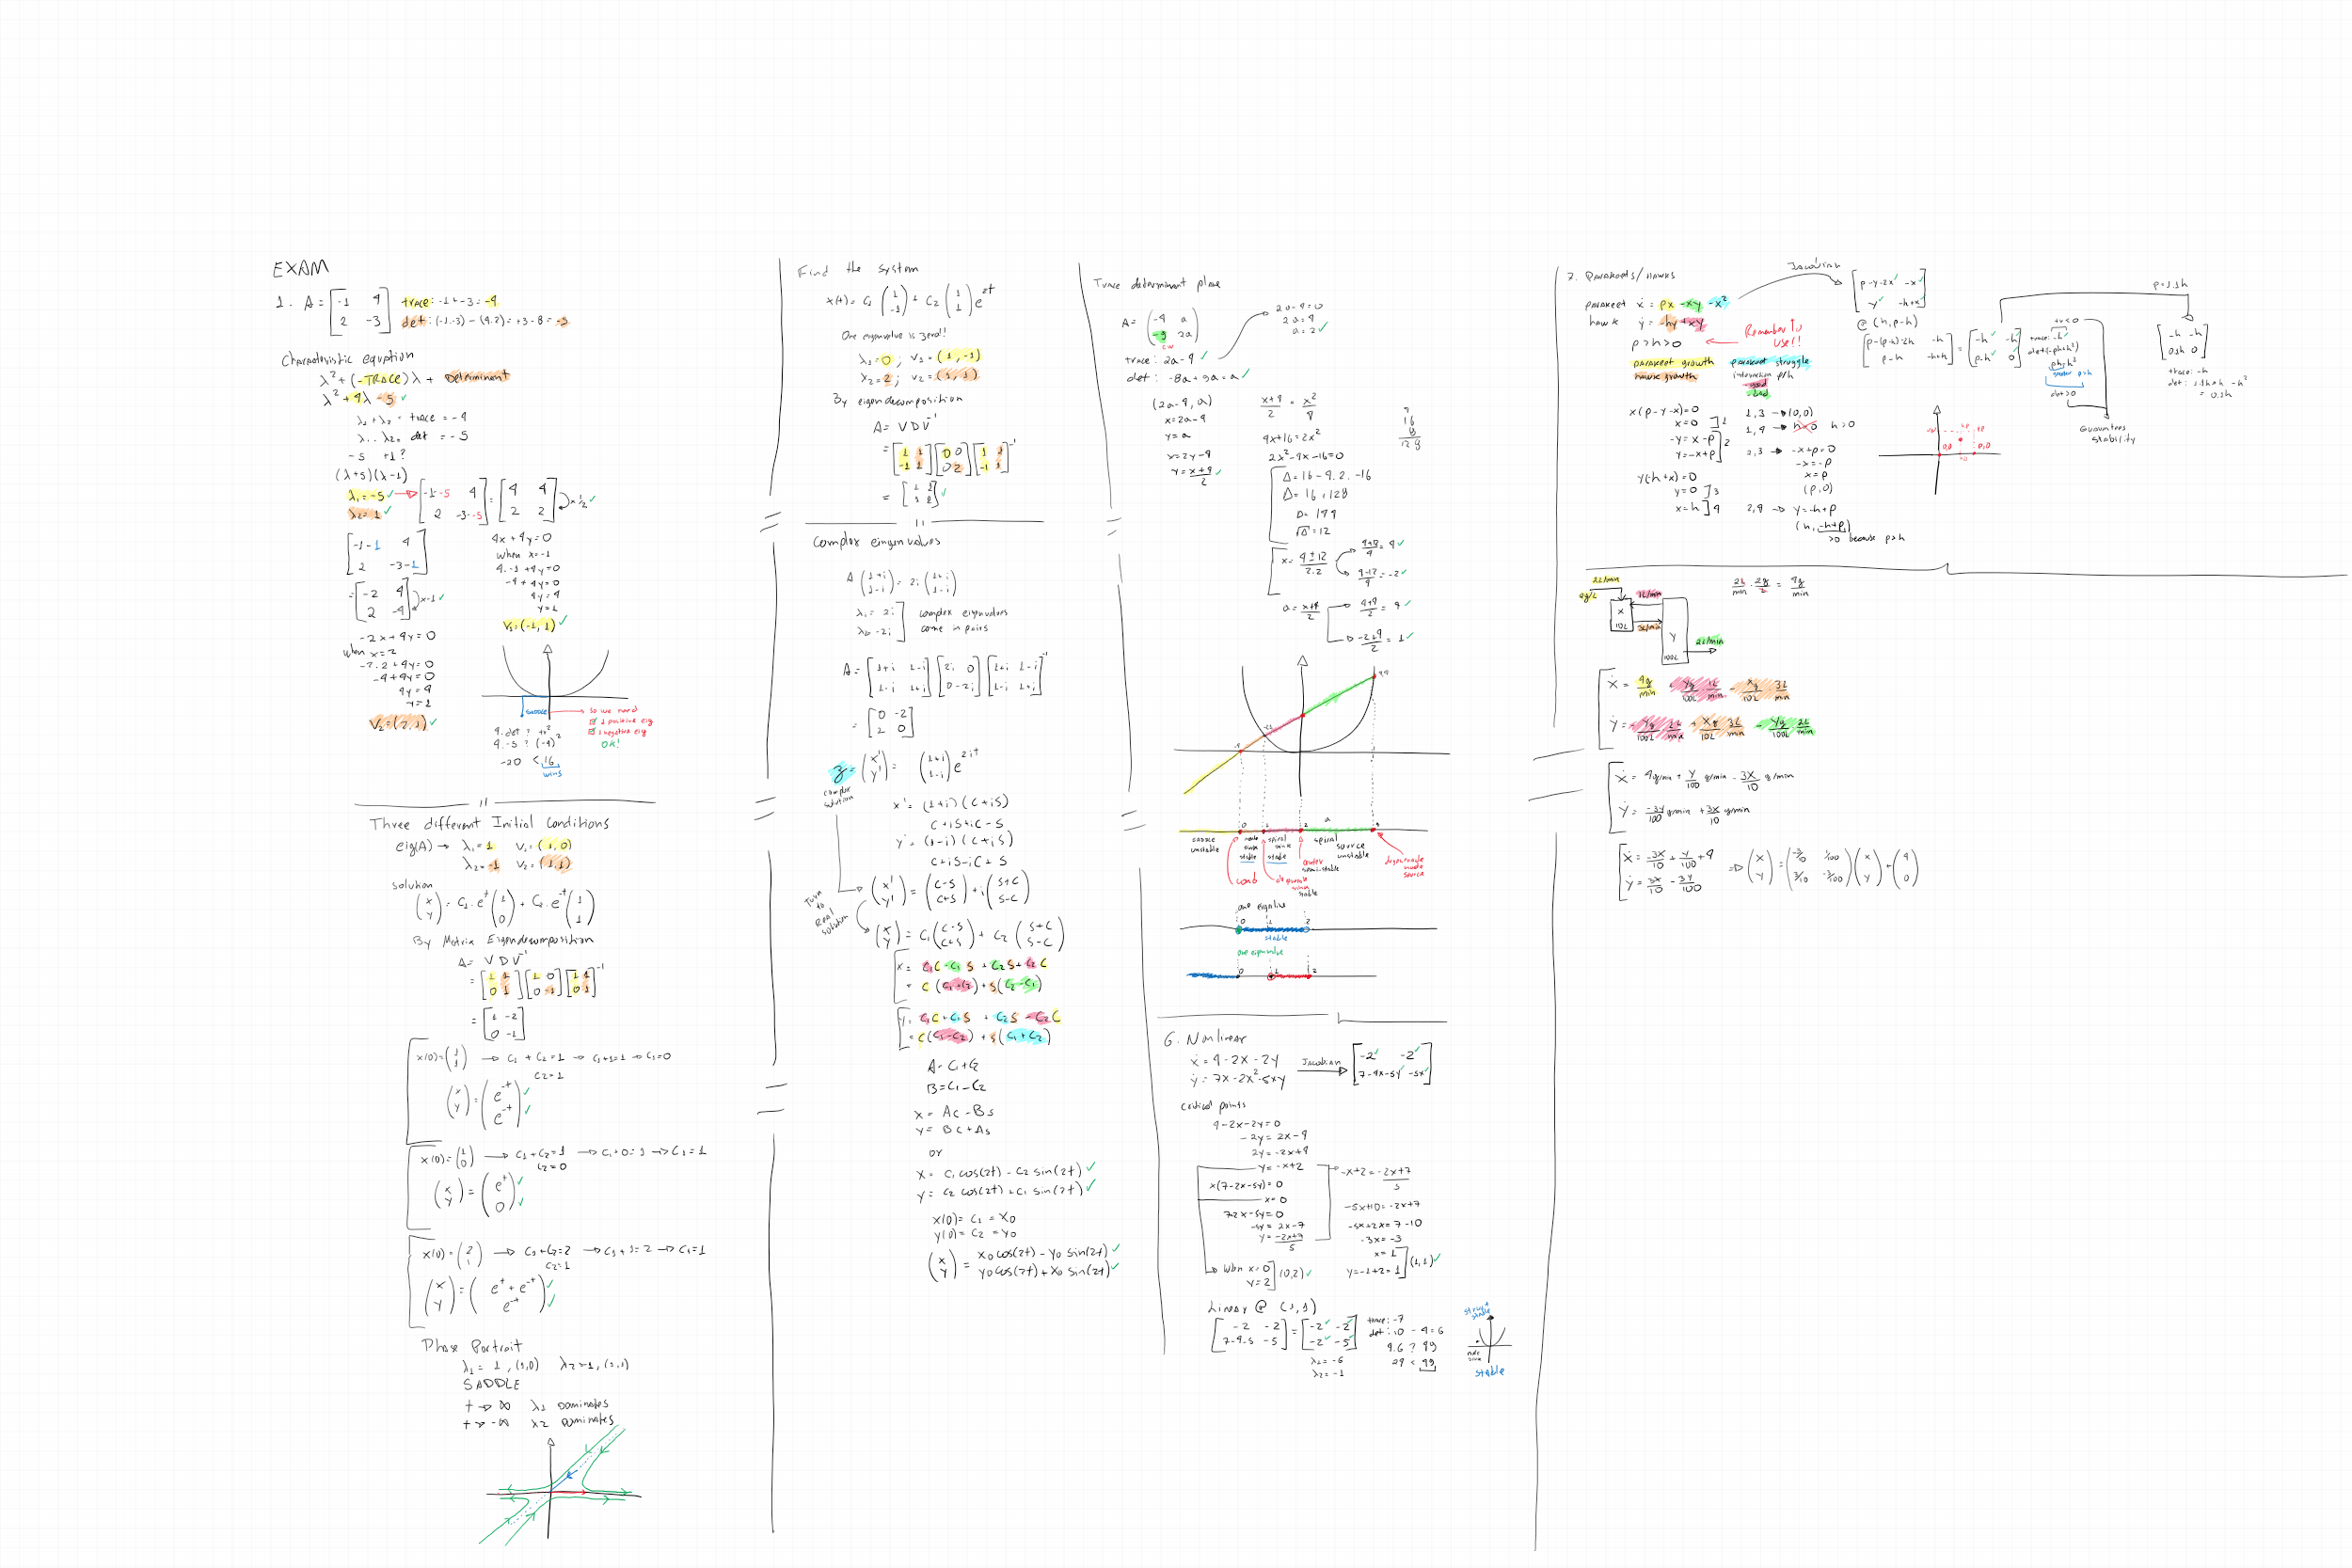 EXAM
1. A = [-1 4; 2 -3] trace: -1 + -3 = -4
det: (-1.-3) - (4.2) = +3-8 = -5
Characteristic equation
λ² + (-TRACE)λ + Determinant
λ² + 4λ - 5 ✓
λ₁ + λ₂ = trace = -4
λ₁ . λ₂ = det = -5
-5 +1?
(λ+5)(λ-1)
λ₁ = -5 ✓ → [-1--5 4; 2 -3--5] = [4 4; 2 2] ×½ ✓
λ₂ = 1 ✓
[-1-1 4; 2 -3-1]
= [-2 4; 2 -4] ×-1 ✓
-2x + 4y = 0
when x=2
-2.2 + 4y = 0
-4 + 4y = 0
4y = 4
y = 1
V₂ = (2,1) ✓
4x + 4y = 0
when x=-1
4.-1 + 4y = 0
-4 + 4y = 0
4y = 4
y = 1
V₁ = (-1,1) ✓
saddle
so we need
1 positive eig
1 negative eig
OK!
4.det ? tr²
4.-5 ? (-4)²
-20 < 16
wins
Three different Initial Conditions
eig(A) → λ₁ = 1 V₁ = (1,0)
λ₂ = -1 V₂ = (1,1)
Solution
(x; y) = C₁.e^t (1; 0) + C₂.e^-t (1; 1)
By Matrix Eigendecomposition
A = V D V⁻¹
= [1 1; 0 1] [1 0; 0 -1] [1 1; 0 1]⁻¹
= [1 -2; 0 -1]
x(0) = (1; 1) → C₁ + C₂ = 1 → C₁+1=1 → C₁=0
C₂=1
(x; y) = (e^-t; e^-t) ✓
x(0) = (1; 0) → C₁ + C₂ = 1 → C₁+0=1 → C₁=1
C₂=0
(x; y) = (e^t; 0) ✓
x(0) = (2; 1) → C₁+C₂=2 → C₁+1=2 → C₁=1
C₂=1
(x; y) = (e^t + e^-t; e^-t) ✓
Phase Portrait
λ₁ = 1, (1,0) λ₂=-1, (1,1)
SADDLE
t → ∞ λ₁ Dominates
t → -∞ λ₂ Dominates
Find the system
x(t) = C₁ (1; -1) + C₂ (1; 1) e^2t
One eigenvalue is zero!!
λ₁=0; V₁ = (1,-1)
λ₂=2; V₂ = (1,1)
By eigendecomposition
A = V D V⁻¹
= [1 1; -1 1] [0 0; 0 2] [1 1; -1 1]⁻¹
= [1 1; 1 1] ✓
Complex eingenvalues
A (1+i; 1-i) = 2i (1+i; 1-i)
λ₁ = 2i complex eigenvalues
λ₂ = -2i come in pairs
A = [1+i 1-i; 1-i 1+i] [2i 0; 0 -2i] [1+i 1-i; 1-i 1+i]⁻¹
= [0 -2; 2 0]
z = (x'; y') = (1+i; 1-i) e^2it
complex solution
x' = (1+i)(C+iS)
C+iS+iC-S
y' = (1-i)(C+iS)
C+iS-iC+S
Turn to Real solution
(x'; y') = (C-S; C+S) + i (S+C; S-C)
(x; y) = C₁ (C-S; C+S) + C₂ (S+C; S-C)
x = C₁C - C₁S + C₂S + C₂C
= C(C₁+C₂) + S(C₂-C₁)
y = C₁C + C₁S + C₂S - C₂C
= C(C₁-C₂) + S(C₁+C₂)
A = C₁+C₂
B = C₁-C₂
x = Ac - Bs
y = Bc + As
or
x = C₁ cos(2t) - C₂ sin(2t) ✓
y = C₂ cos(2t) + C₁ sin(2t) ✓
x(0) = C₁ = x₀
y(0) = C₂ = y₀
(x; y) = x₀cos(2t) - y₀ sin(2t) ✓
y₀cos(2t) + x₀ sin(2t) ✓
Trace determinant plane
A = (-4 a; -9 2a)
2a-4=0
2a=4
a=2 ✓
trace: 2a-4 ✓
det: -8a+9a = a ✓
(2a-4, a)
x=2a-4
y=a
x=2y-4
y = (x+4)/2 ✓
(x+4)/2 = x²/4
4x+16=2x²
2x²-4x-16=0
Δ = 16-4.2.-16
Δ = 16+128
Δ = 144
√Δ = 12
x = (4±12)/2.2
(4+12)/4 = 4 ✓
(4-12)/4 = -2 ✓
a = (x+4)/2
(4+4)/2 = 4 ✓
(-2+4)/2 = 1 ✓
16
8
128
saddle unstable
node sink stable
spiral sink stable
spiral source unstable
comb
degenerate sink stable
center semi-stable
degenerate node source
one eigenvalue
stable
one eigenvalue
6. Nonlinear
ẋ = 4-2x-2y
ẏ = 7x-2x²-5xy
Jacobian → [-2 -2; 7-4x-5y -5x]
Critical points
4-2x-2y=0
-2y = 2x-4
2y = -2x+4
y = -x+2
x(7-2x-5y)=0
x=0
7-2x-5y=0
-5y = 2x-7
y = (-2x+7)/5
when x=0
y=2 (0,2) ✓
-x+2 = (-2x+7)/5
-5x+10 = -2x+7
-5x+2x = 7-10
-3x=-3
x=1
y=-1+2=1 (1,1) ✓
Linear @ (1,1)
[-2 -2; 7-4-5 -5] = [-2 -2; -2 -5]
trace: -7
det: 10 - 4 = 6
4.6 ? 49
24 < 49
λ₁ = -6
λ₂ = -1
node sink
stable
7. Parakeets/Hawks
parakeet ẋ = px - xy - x²
hawk ẏ = -hy + xy
p>h>0 ← Remember to use!!
parakeet growth parakeet struggle
hawk growth interaction p/h
good
bad
Jacobian
[p-y-2x -x; y -h+x]
@ (h, p-h)
[p-(p-h)-2h -h; p-h -h+h] = [-h -h; p-h 0]
tr<0
trace: -h
det>0
Guarantees stability
p=1.1h
[-h -h; 0.1h 0]
trace: -h
det: 1.1h×h - h²
= 0.1h
x(p-y-x)=0
x=0 ]1
-y=x-p
y=-x+p ]2
y(-h+x)=0
y=0 ]3
x=h ]4
1,3 → (0,0)
1,4 → h=0 h>0
2,3 → -x+p=0
-x=-p
x=p
(p,0)
2,4 → y=-h+p
(h, -h+p)
>0 because p>h
2L/min
2g/L
1L/min
3L/min
2L/min
X
10L
Y
100L
2L/min . 2g/L = 4g/min
ẋ = 4g/min + Yg/100L 1L/min - Xg/10L 3L/min
ẏ = - Yg/100L 1L/min + Xg/10L 3L/min - Yg/100L 2L/min
ẋ = 4g/min + Y/100 g/min - 3X/10 g/min
ẏ = -3Y/100 g/min + 3X/10 g/min
ẋ = -3X/10 + Y/100 + 4
ẏ = 3X/10 - 3Y/100
⇒ (x; y) = (-3/10 1/100; 3/10 -3/100) (x; y) + (4; 0)